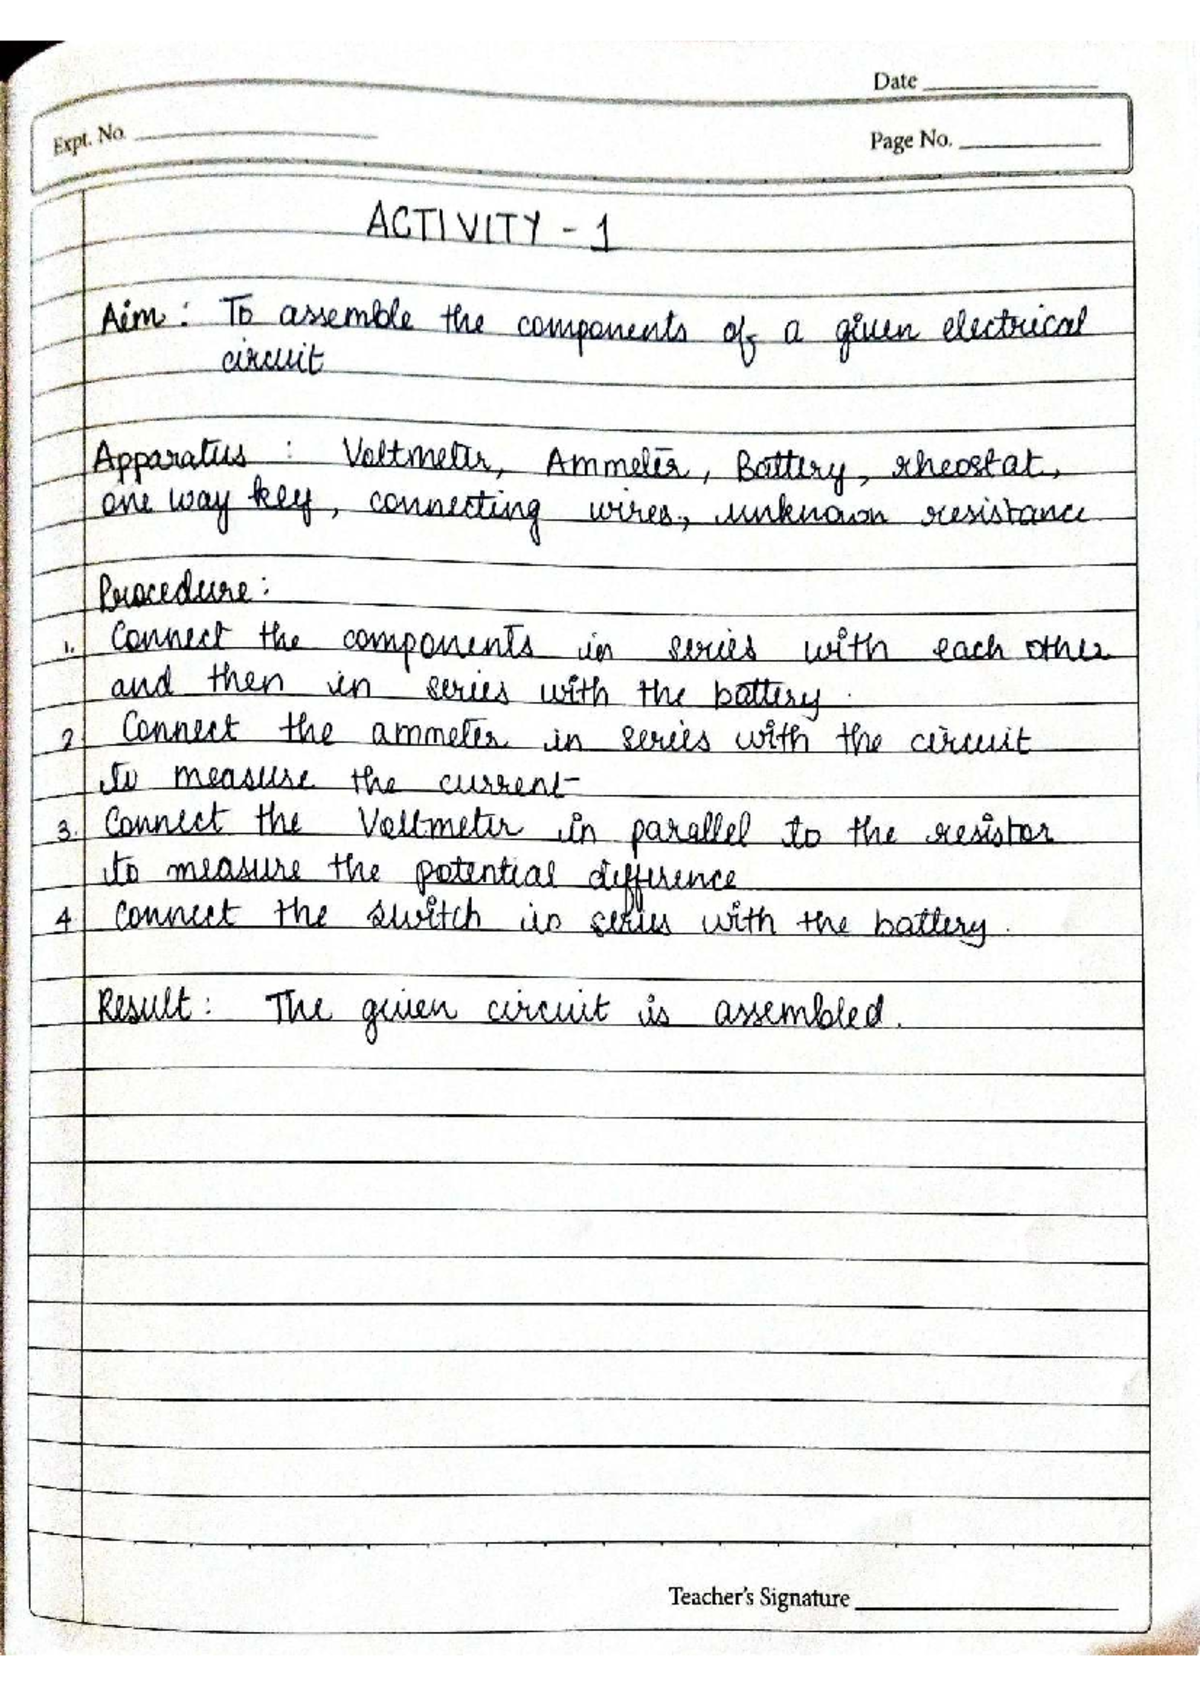 Date
Expt. No.
Page No.
ACTIVITY - 1
Aim : To assemble the components of a given electrical
circuit
Apparatus : Voltmeter, Ammeter, Battery, rheostat,
one way key, connecting wires, unknown resistance
Procedure :
1. Connect the components in series with each other
and then in series with the battery.
2 Connect the ammeter in series with the circuit
to measure the current
3. Connect the Voltmeter in parallel to the resistor
to measure the potential difference
4 Connect the switch in series with the battery.
Result : The given circuit is assembled.
Teacher's Signature